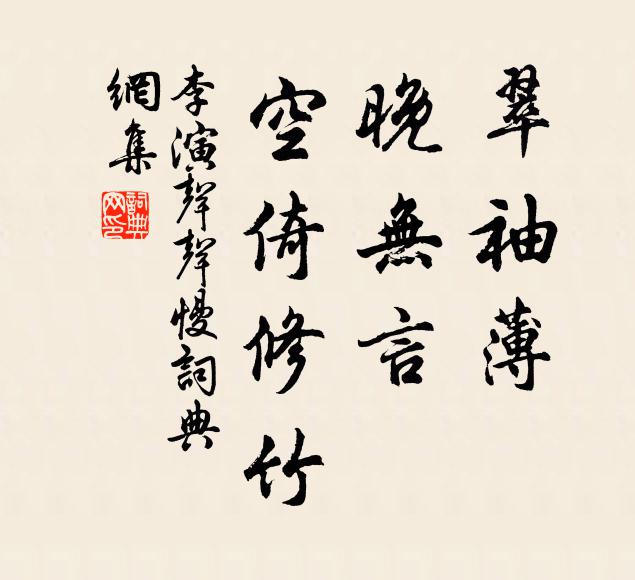 翠袖薄
晚無言
空倚修竹
李演聲聲慢詞典
網集
詞典網印